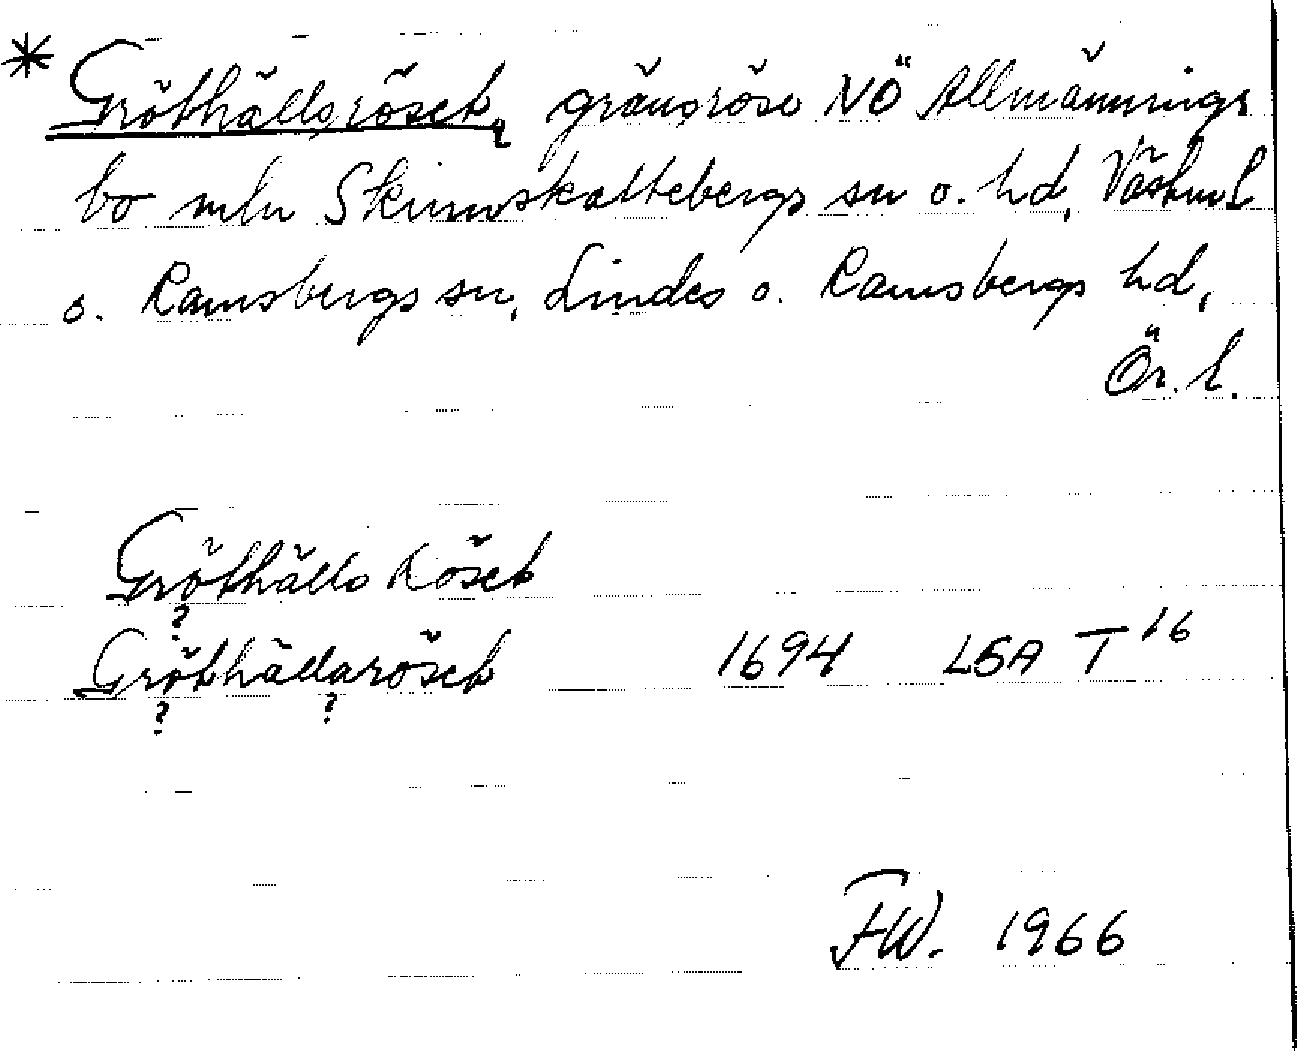 * Gröthällsröset, gränsröse NÖ Allmännings
bo mln Skinnskattebergs sn o. hd, Västml
o. Ramsbergs sn, Lindes o. Ramsbergs hd,
Ör. l.
Gröthälls Röset
?
Gröthällaröset 1694 LSA T 16
? ?
FW. 1966